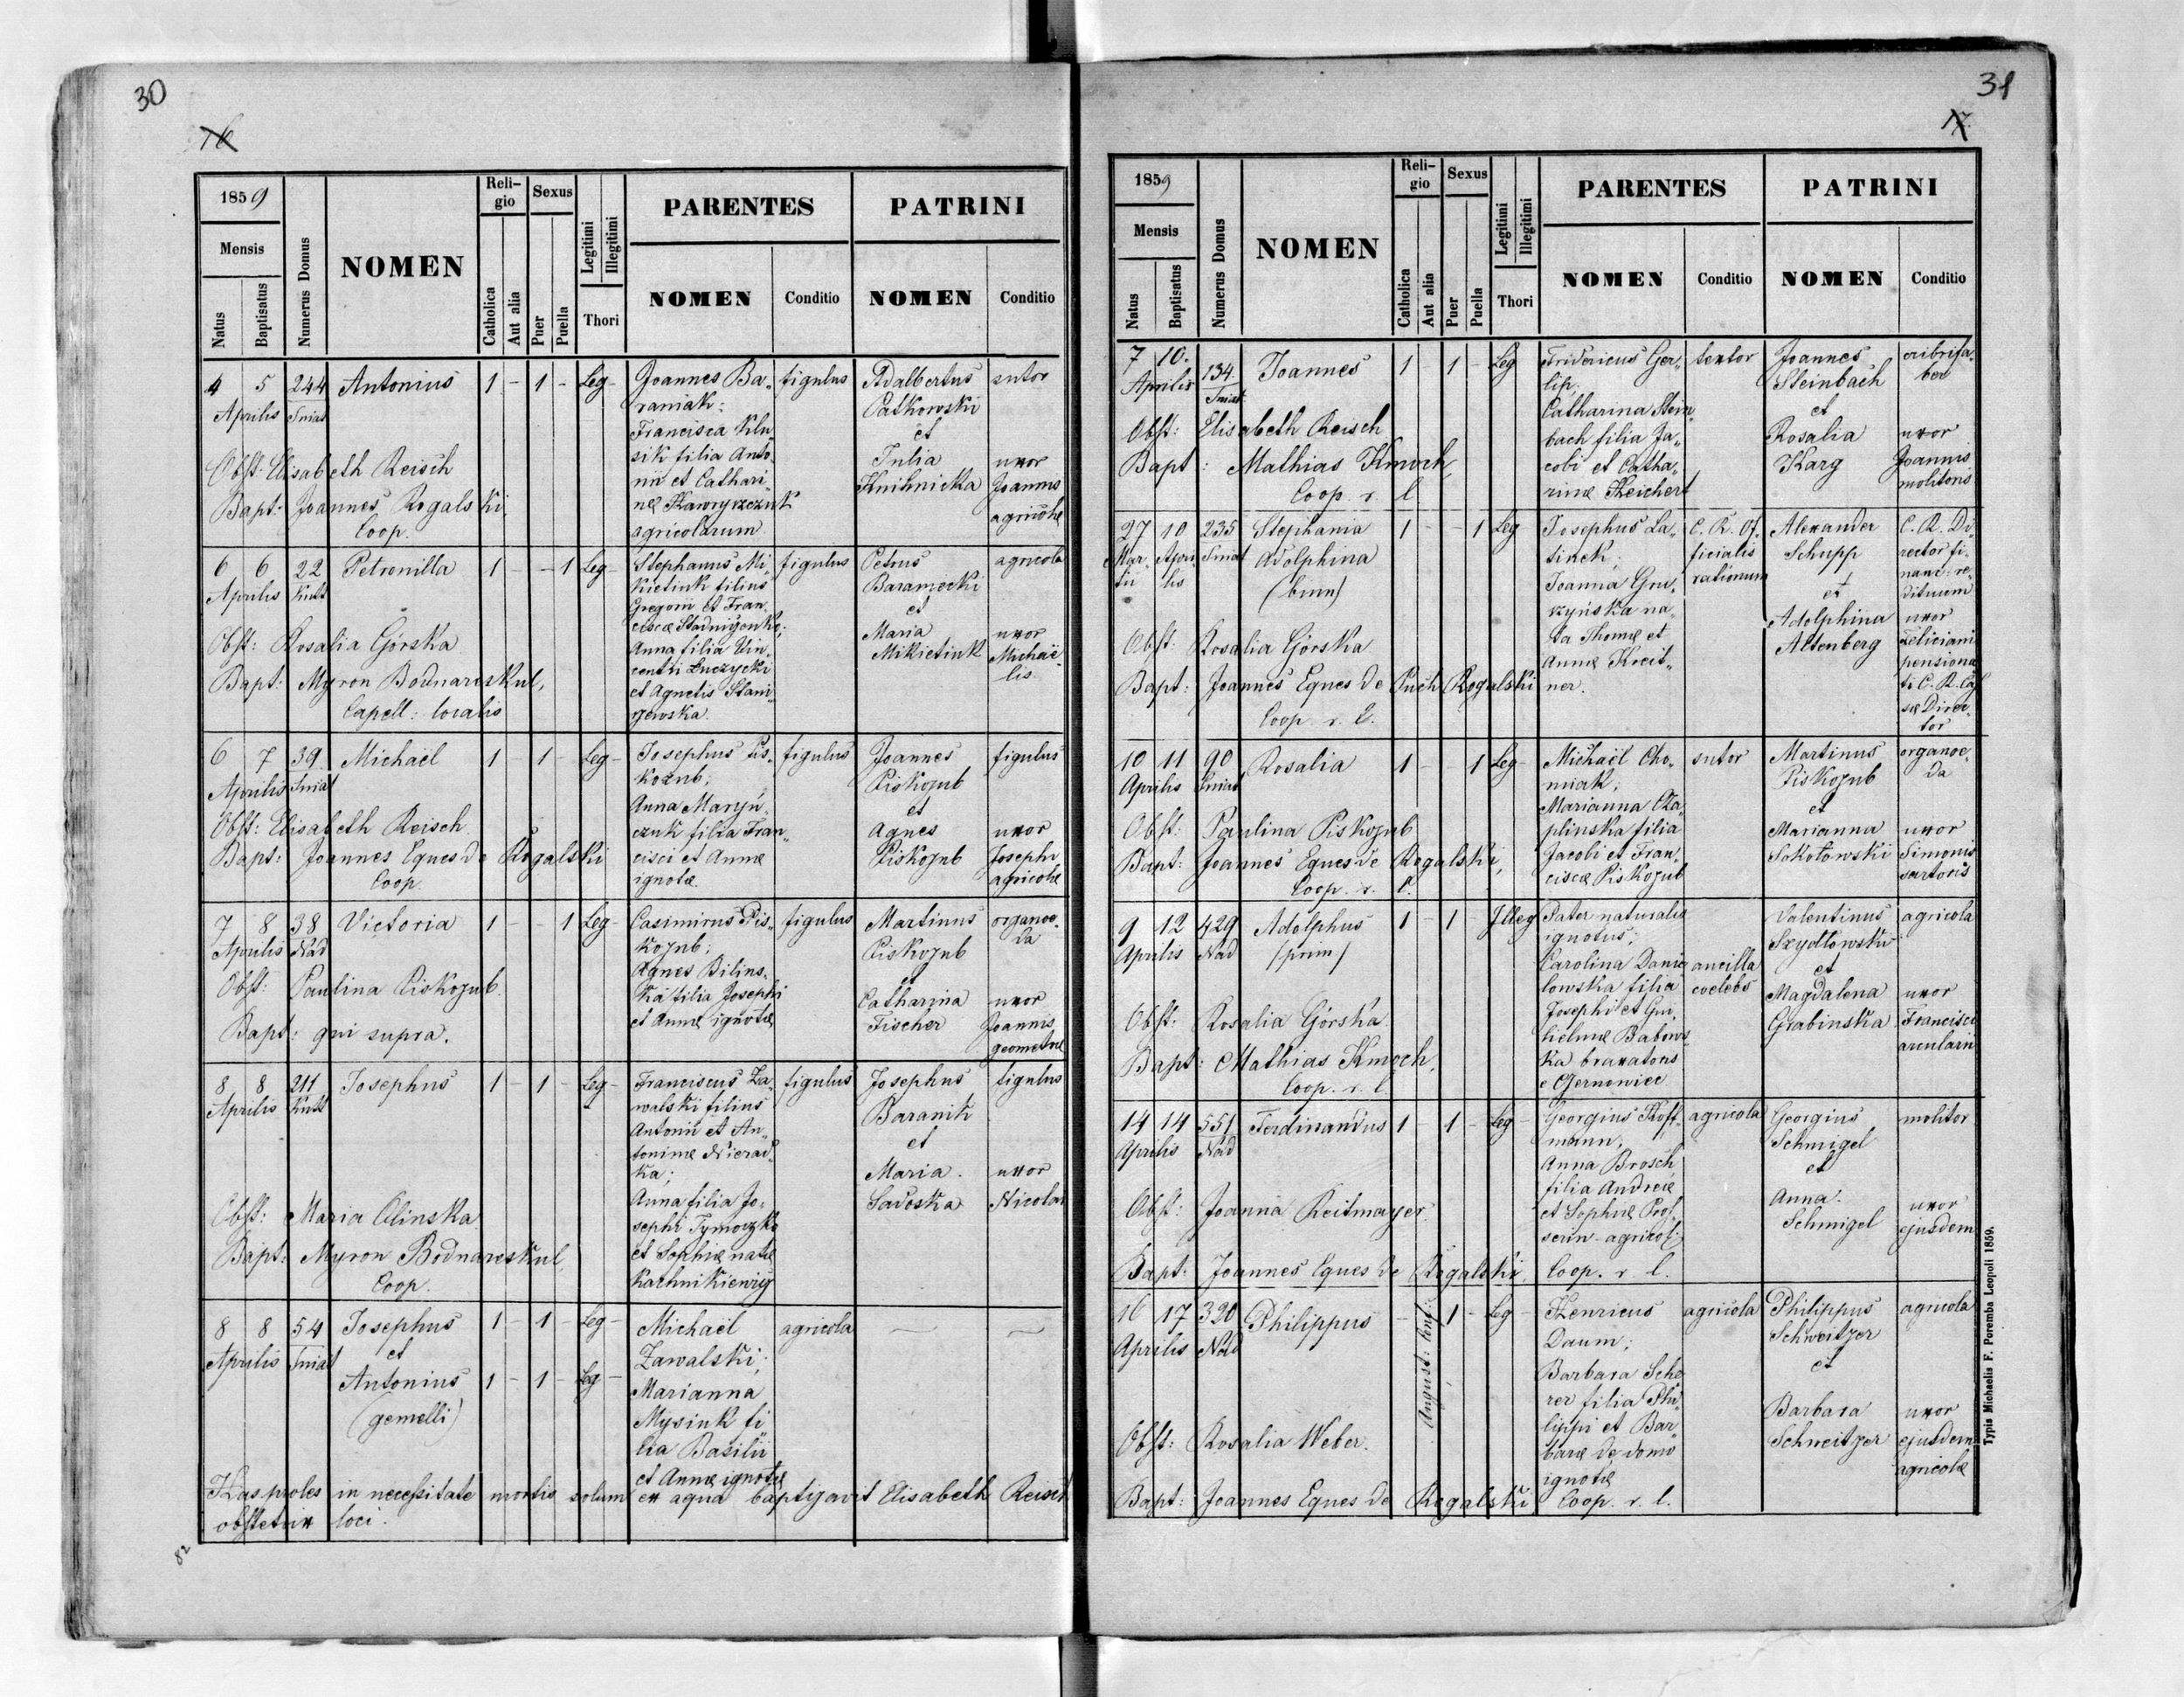 30
16
1859
Mensis
Natus
Baptisatus
Numerus Domus
NOMEN
Reli-
gio
Catholica
Aut alia
Sexus
Puer
Puella
Legitimi
Illegitimi
Thori
PARENTES
NOMEN
Conditio
PATRINI
NOMEN
Conditio
4 5 244 Antonius 1 - 1 - Leg -
Aprilis Sniat
Joannes Ba-
raniak:
Francisca
sik filia Anto-
nii et Cathari-
næ
agricolarum
figulus
Adalbertus
Patkowski
et
Julia
Knihnicka
sutor
uxor
Joannis
agricolæ
Obst: Elisabeth Reisch
Bapt: Joannes Rogalski,
Coop.
6 6 22 Petronilla 1 - - 1 Leg -
Aprilis Kutt
Stephanus Mi-
kietiuk filius
Gregorii et Fran-
ciscæ
Anna filia Vin-
centii Luczycki
et Agnetis Stani-
szewska.
figulus
Petrus
Baranecki
et
Maria
Mikietiuk
agricola
uxor
Michaë-
lis.
Obst: Rosalia Górska
Bapt: Myron Bodnareskul,
Capell: localis
6 7 39 Michaël 1 - 1 - Leg -
Aprilis Sniat
Josephus Pis-
kozub;
Anna Maryń-
czuk filia Fran-
cisci et Annæ
ignotæ.
figulus
Joannes
Piskozub
et
Agnes
Piskozub
figulus
uxor
Josephi
agricolæ
Obst: Elisabeth Reisch
Bapt: Joannes Eques de Rogalski
Coop.
7 8 38 Victoria 1 - - 1 Leg -
Aprilis Nad
Casimirus Pis-
kozub;
Agnes Bilins-
ka filia Josephi
et Annæ ignotæ
figulus
Martinus
Piskozub
et
Catharina
Fischer
organoe-
da
uxor
Joannis
geometræ
Obst: Paulina Piskozub.
Bapt: qui supra.
8 8 211 Josephus 1 - 1 - Leg -
Aprilis Kutt
Franciscus Za-
walski filius
Antonii et An-
toninæ Nierad-
ka;
Anna filia Jo-
sephi Tymoczko
et Sophiæ natæ
figulus
Josephus
Baranik
et
Maria
Sadoska
figulus
uxor
Nicolai
Obst: Maria Olinska
Bapt: Myron Bodnareskul,
Coop.
8 8 54 Josephus 1 - 1 - Leg -
Aprilis Sniat et
Antonius 1 - 1 - Leg -
(gemelli)
Michaël
Zawalski;
Marianna
Mysiuk fi-
lia Basilii
et Annæ ignotæ
agricola
Has proles in necessitate mortis solum ex aqua baptizavit Elisabeth Reisch
obstetrix loci.
82
31
17.
1859
Mensis
Natus
Baptisatus
Numerus Domus
NOMEN
Reli-
gio
Catholica
Aut alia
Sexus
Puer
Puella
Legitimi
Illegitimi
Thori
PARENTES
NOMEN
Conditio
PATRINI
NOMEN
Conditio
7 10. 134 Joannes 1 - 1 - Leg
Aprilis Sniat
Fridericus Ger-
lip;
Catharina Stein
bach filia Ja-
cobi et Catha-
rinæ Reichert
textor
Joannes
Steinbach
et
Rosalia
Karg
cribrifa-
ber
uxor
Joannis
molitoris
Obst: Elisabeth Reisch
Bapt: Mathias Kmoch,
Coop. r. l.
27 10 235 Stephania 1 - - 1 Leg
Mar- Apri- Sniat Adolphina
tii lis (binn)
Josephus La-
tinek;
Joanna Gru-
szyńska na-
ta Thomæ et
Annæ Kreit-
ner.
C. R. Of-
ficialis
rationum
Alexander
Schupp
et
Adolphina
Altenberg
C. R. Di-
rector fi-
nanc: re-
dituum
uxor
Feliciani
pensiona-
ti C. R. Cas
sæ Direc-
tor
Obst: Rosalia Górska
Bapt: Joannes Eques de Ruch Rogalski
Coop. r. l.
10 11 90 Rosalia 1 - - 1 Leg -
Aprilis Sniat
Michaël Cho-
miak;
Marianna Cza-
plinska filia
Jacobi et Fran-
ciscæ Piskozub
sutor
Martinus
Piskozub
et
Marianna
Sokołowski
organoe-
da
uxor
Simonis
sartoris
Obst: Paulina Piskozub
Bapt: Joannes Eques de Rogalski,
Coop. r. l.
9 12 429 Adolphus 1 - 1 - Illeg
Aprilis Nad (prim)
Pater naturalis
ignotus;
Carolina Danie
lowska filia
Josephi et Gui-
lielmæ Babows-
ka braxatoris
e Czernowiec
ancilla
coelebs
Valentinus
Szydłowski
et
Magdalena
Grabinska
agricola
uxor
Francisci
arcularii
Obst: Rosalia Górska
Bapt: Mathias Kmoch,
Coop. r. l.
14 14 551 Ferdinandus 1 - 1 - Leg -
Aprilis Nad
Georgius Hoff-
mann;
Anna Brosch
filia Andreæ
et Sophiæ Pros-
serin agricol:
agricola
Georgius
Schmigel
et
Anna
Schmigel
molitor
uxor
ejusdem
Obst: Joanna Reitmayer.
Bapt: Joannes Eques de Rogalski, Coop. r. l.
16 17 320 Philippus - August: Conf: 1 - Leg -
Aprilis Nad
Henricus
Daum;
Barbara Scho
rer filia Phi-
lippi et Bar-
baræ de domo
ignotæ
agricola
Philippus
Schweitzer
et
Barbara
Schweitzer
agricola
uxor
ejusdem
agricolæ
Obst: Rosalia Weber.
Bapt: Joannes Eques de Rogalski Coop. r. l.
Typis Michaelis F. Poremba Leopoli 1859.